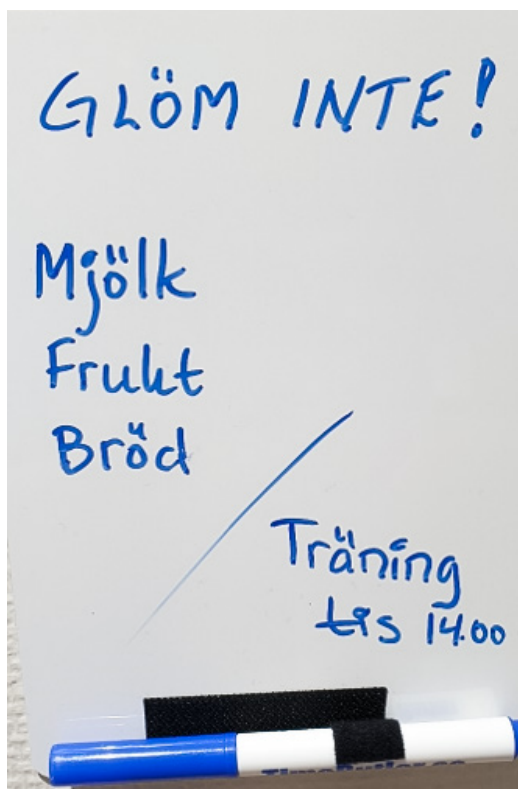 GLÖM INTE!
Mjölk
Frukt
Bröd
Träning
tis 14.00